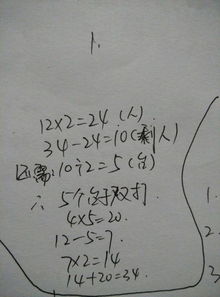 1.
12×2=24(人)
34-24=10(剩人)
还需:10÷2=5(台)
∴ 5个台子双打
4×5=20.
12-5=7.
7×2=14
14+20=34.
1.
2.
3.